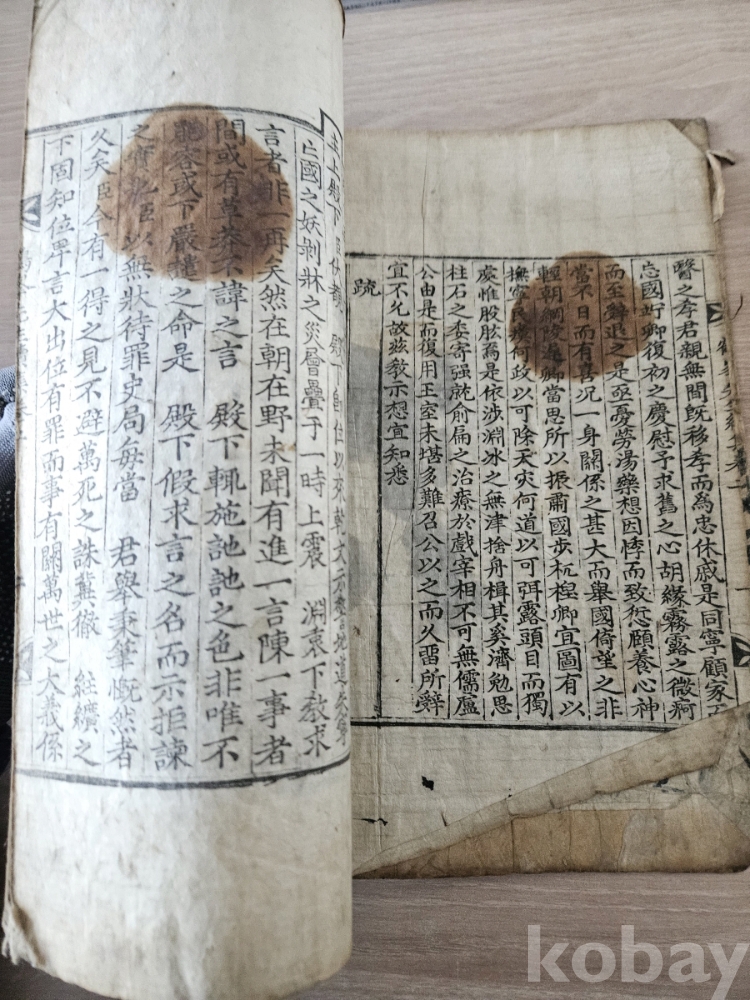 醫之孝君親無間旣移孝而爲忠休戚是同寧顧家
忘國竚卿復初之慶慰予求舊之心胡緣霧露之微痾
而至退之是亟憂勞湯藥想因悸而致愆頤養心神
當不日而有喜況一身關係之甚大而擧國倚望之非
輕朝綱陵遲卿當思所以振肅國步杌卿宜圖有以
撫寧民瘼何政以可除天灾何道以可弭露頭目而獨
處惟股肱焉是依涉淵氷之無津捨舟楫其奚濟勉思
柱石之委寄强就俞扁之治療於戲宰相不可無儒廬
公由是而復用王室未堪多難召公以之而久留所辭
宜不允故玆敎示想宜知悉
疏
主上殿下 殿下卽位以來乾文示警地道失寧
亡國之妖剝牀之災層疊于一時上震 淵衷下敎求
言者非一再矣然在朝在野未聞有進一言陳一事者
間或有草莽不諱之言 殿下輒施訑訑之色非唯不
聽容或下嚴譴之命是 殿下假求言之名而示拒諫
之實也臣以無狀待罪史局每當 君擧秉筆慨然者
久矣臣今有一得之見不避萬死之誅冀徹 紸纊之
下固知位卑言大出位有罪而事有關萬世之大義係
kobay